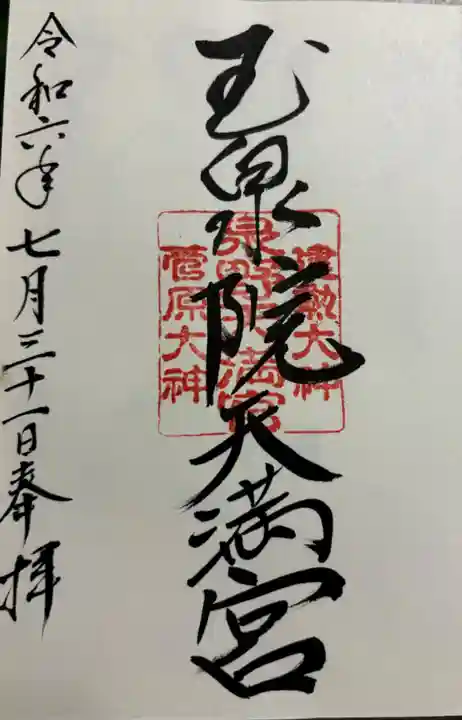 玉泉院天満宮
建勲大神
泉野天満宮
菅原大神
令和六年七月三十一日奉拝